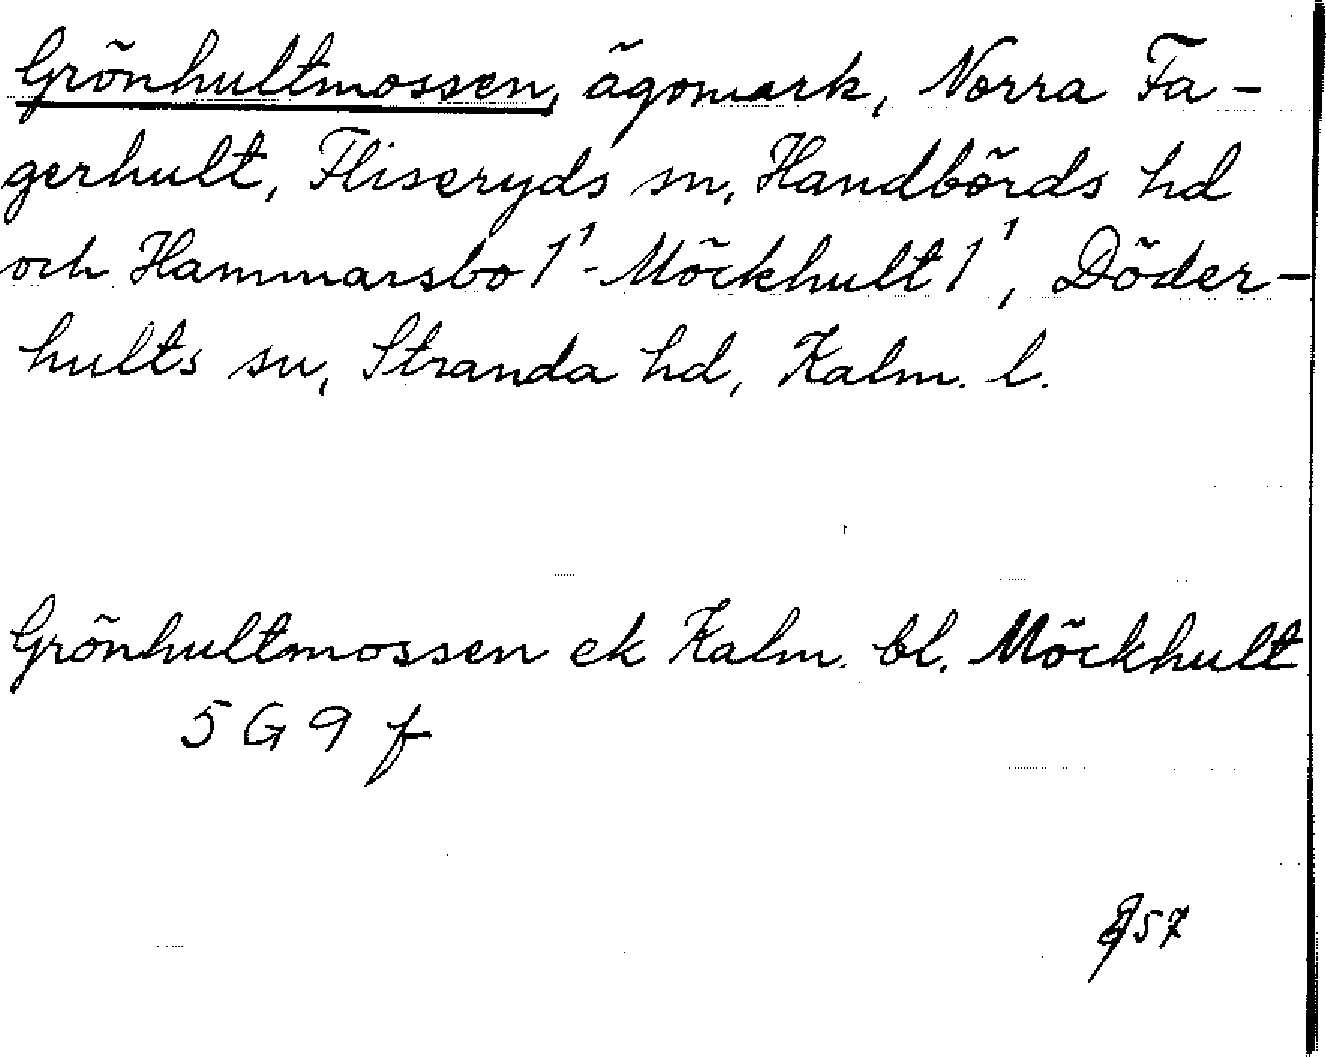 Grönhultmossen, ägomark, Norra Fa-
gerhult, Fliseryds sn, Handbörds hd
och Hammarsbo 1¹-Möckhult 1¹, Döder-
hults sn, Stranda hd, Kalm. l.
Grönhultmossen ek Kalm. bl. Möckhult
5 G 9 f
57